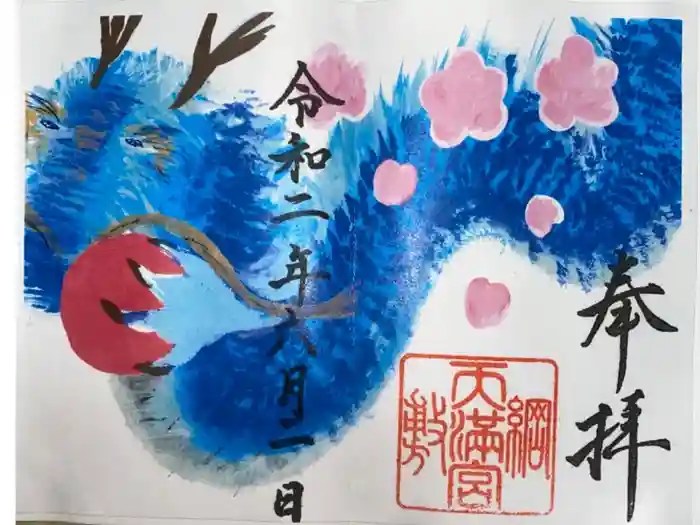 奉拝
綱
天満宮
敷
令和二年六月二日